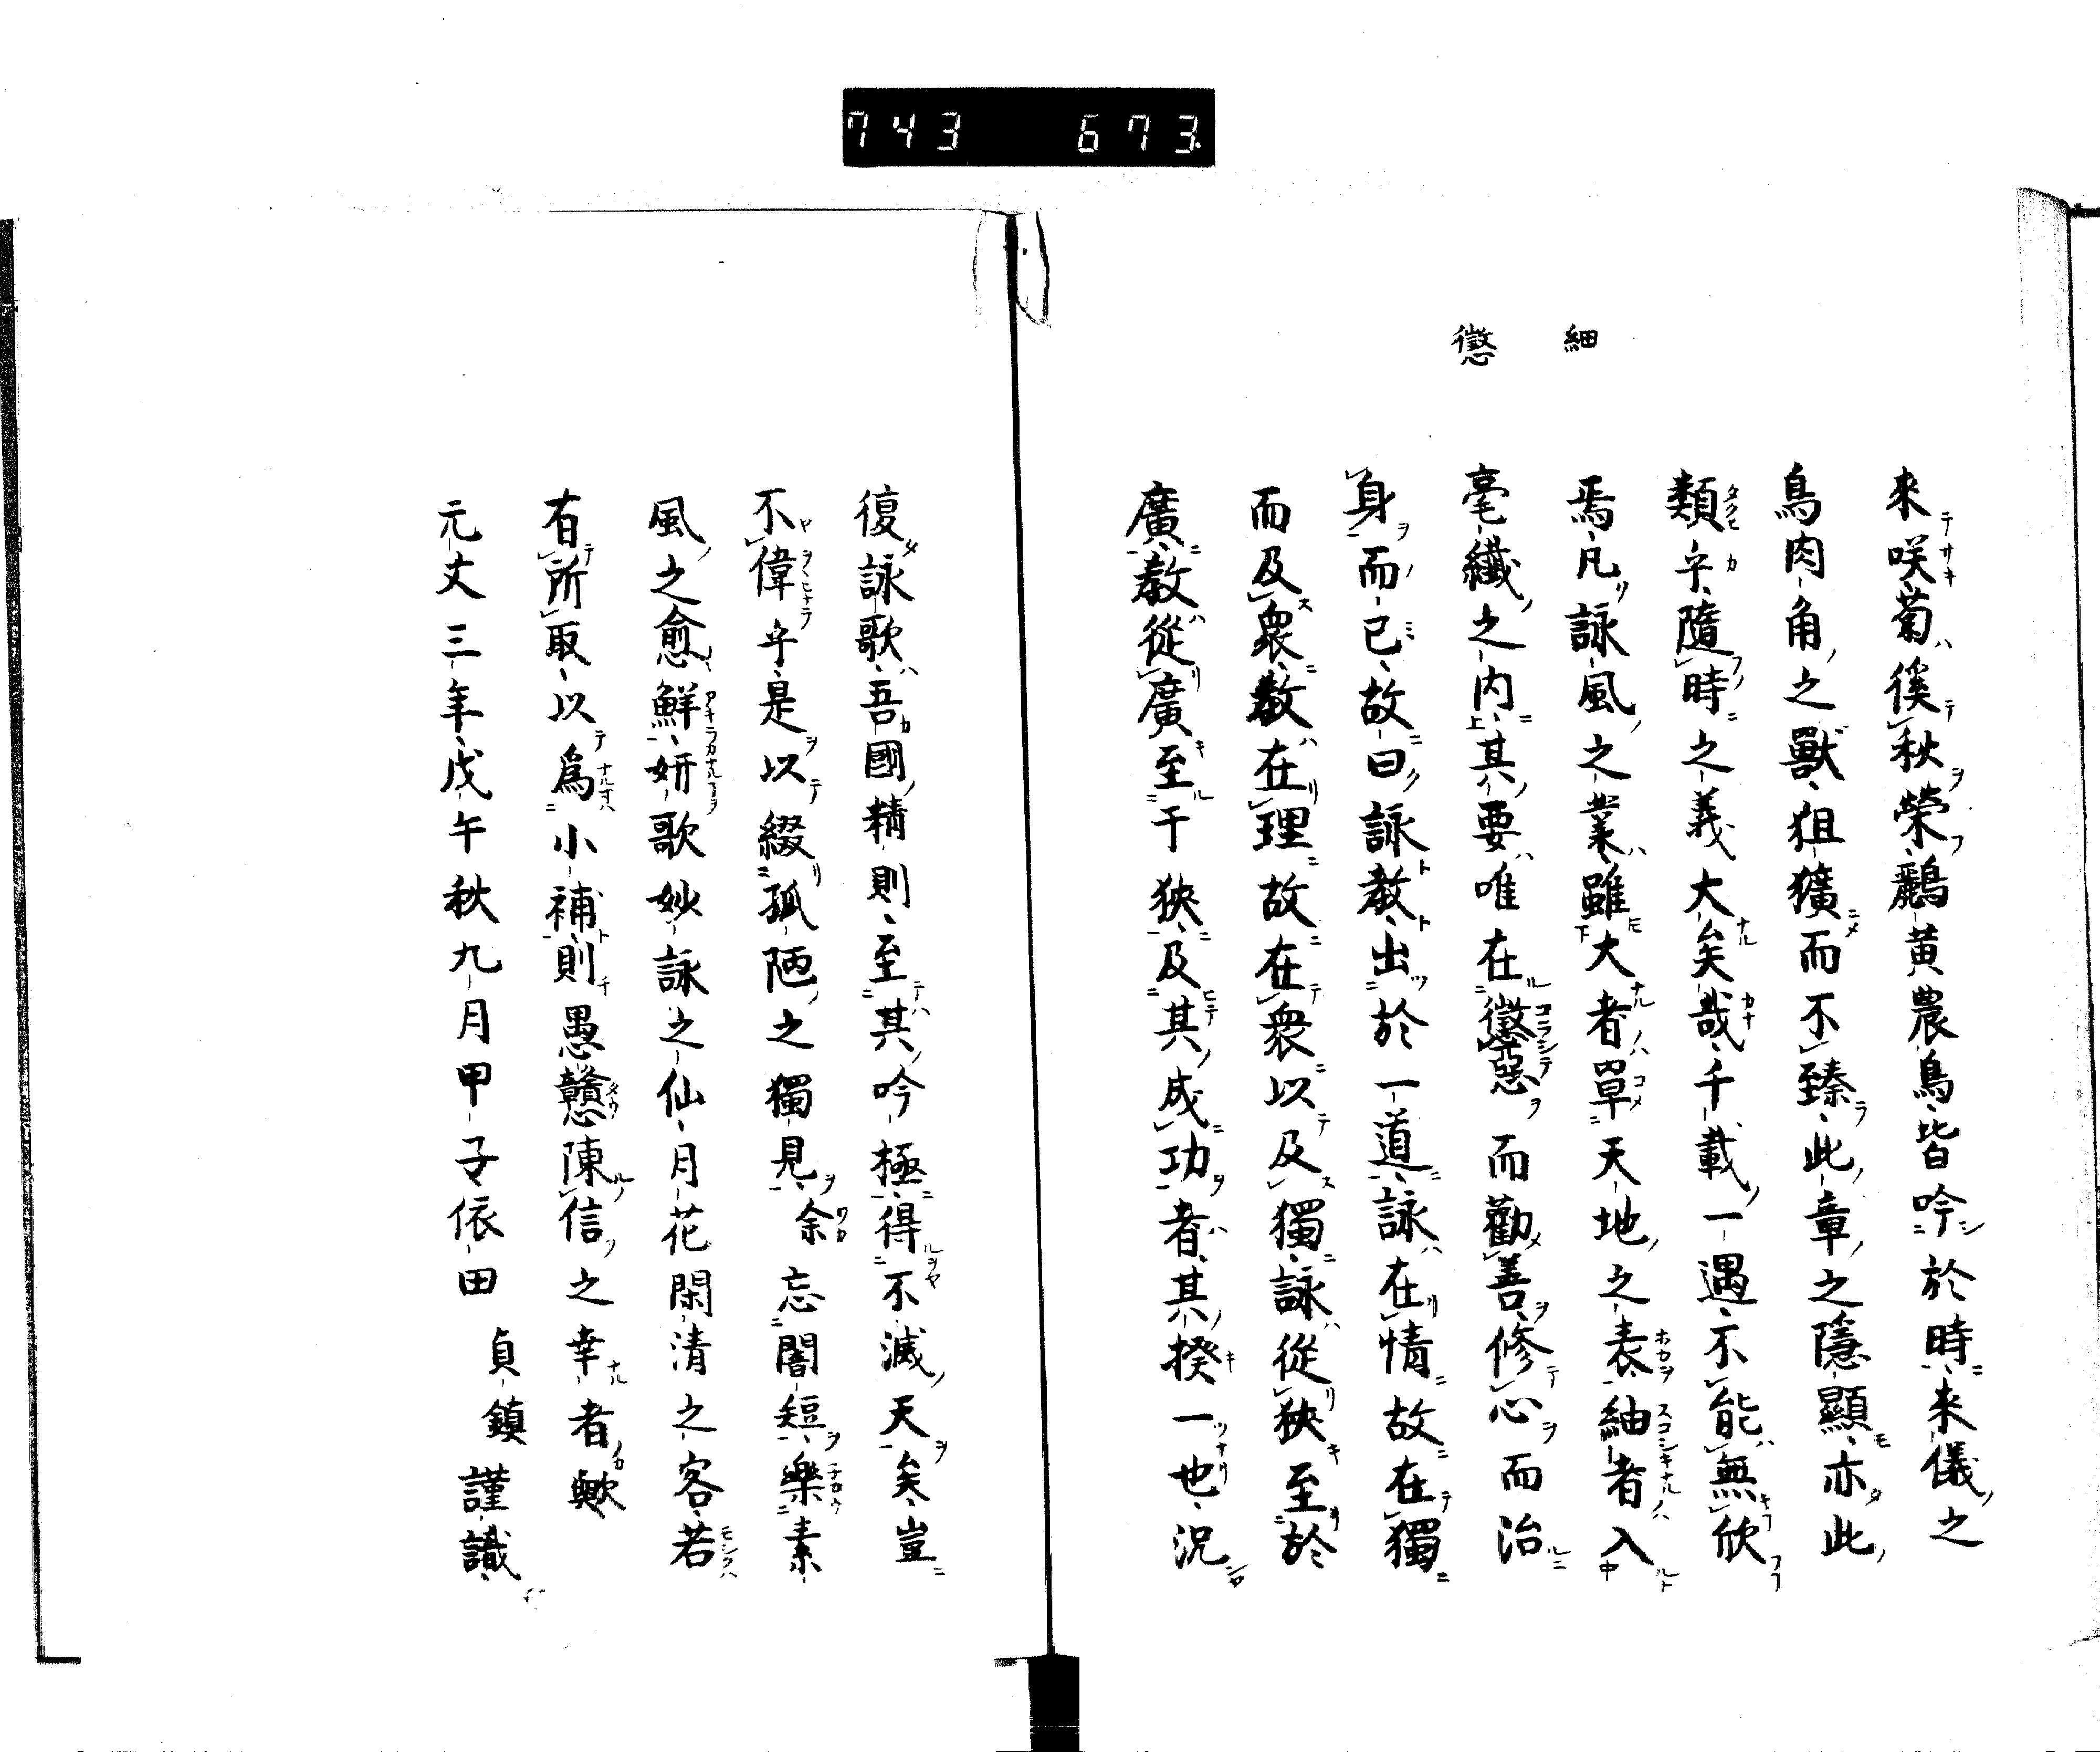 743 673
細
懲
來咲菊徯秋榮鸝黄農鳥皆吟於時來儀之
鳥肉角之獸狙獷而不臻此章之隱顯亦此
類乎隨時之義大矣哉千載一遇不能無欣
焉凡詠風之業雖大者覃天地之表紬者入
毫纖之内其要唯在懲惡而勸善修心而治
身而已故曰詠教出於一道詠在情故在獨
而及衆教在理故在衆以及獨詠從狹至於
廣教從廣至于狹及其成功者其揆一也況
復詠歌吾國精則至其吟極得不滅天矣豈
不偉乎是以綴孤陋之獨見余忘闇短樂素
風之愈鮮妍歌妙詠之仙月花閑清之客若
有所取以爲小補則愚戇陳信之幸者歟
元文三年戊午秋九月甲子依田貞鎮謹識